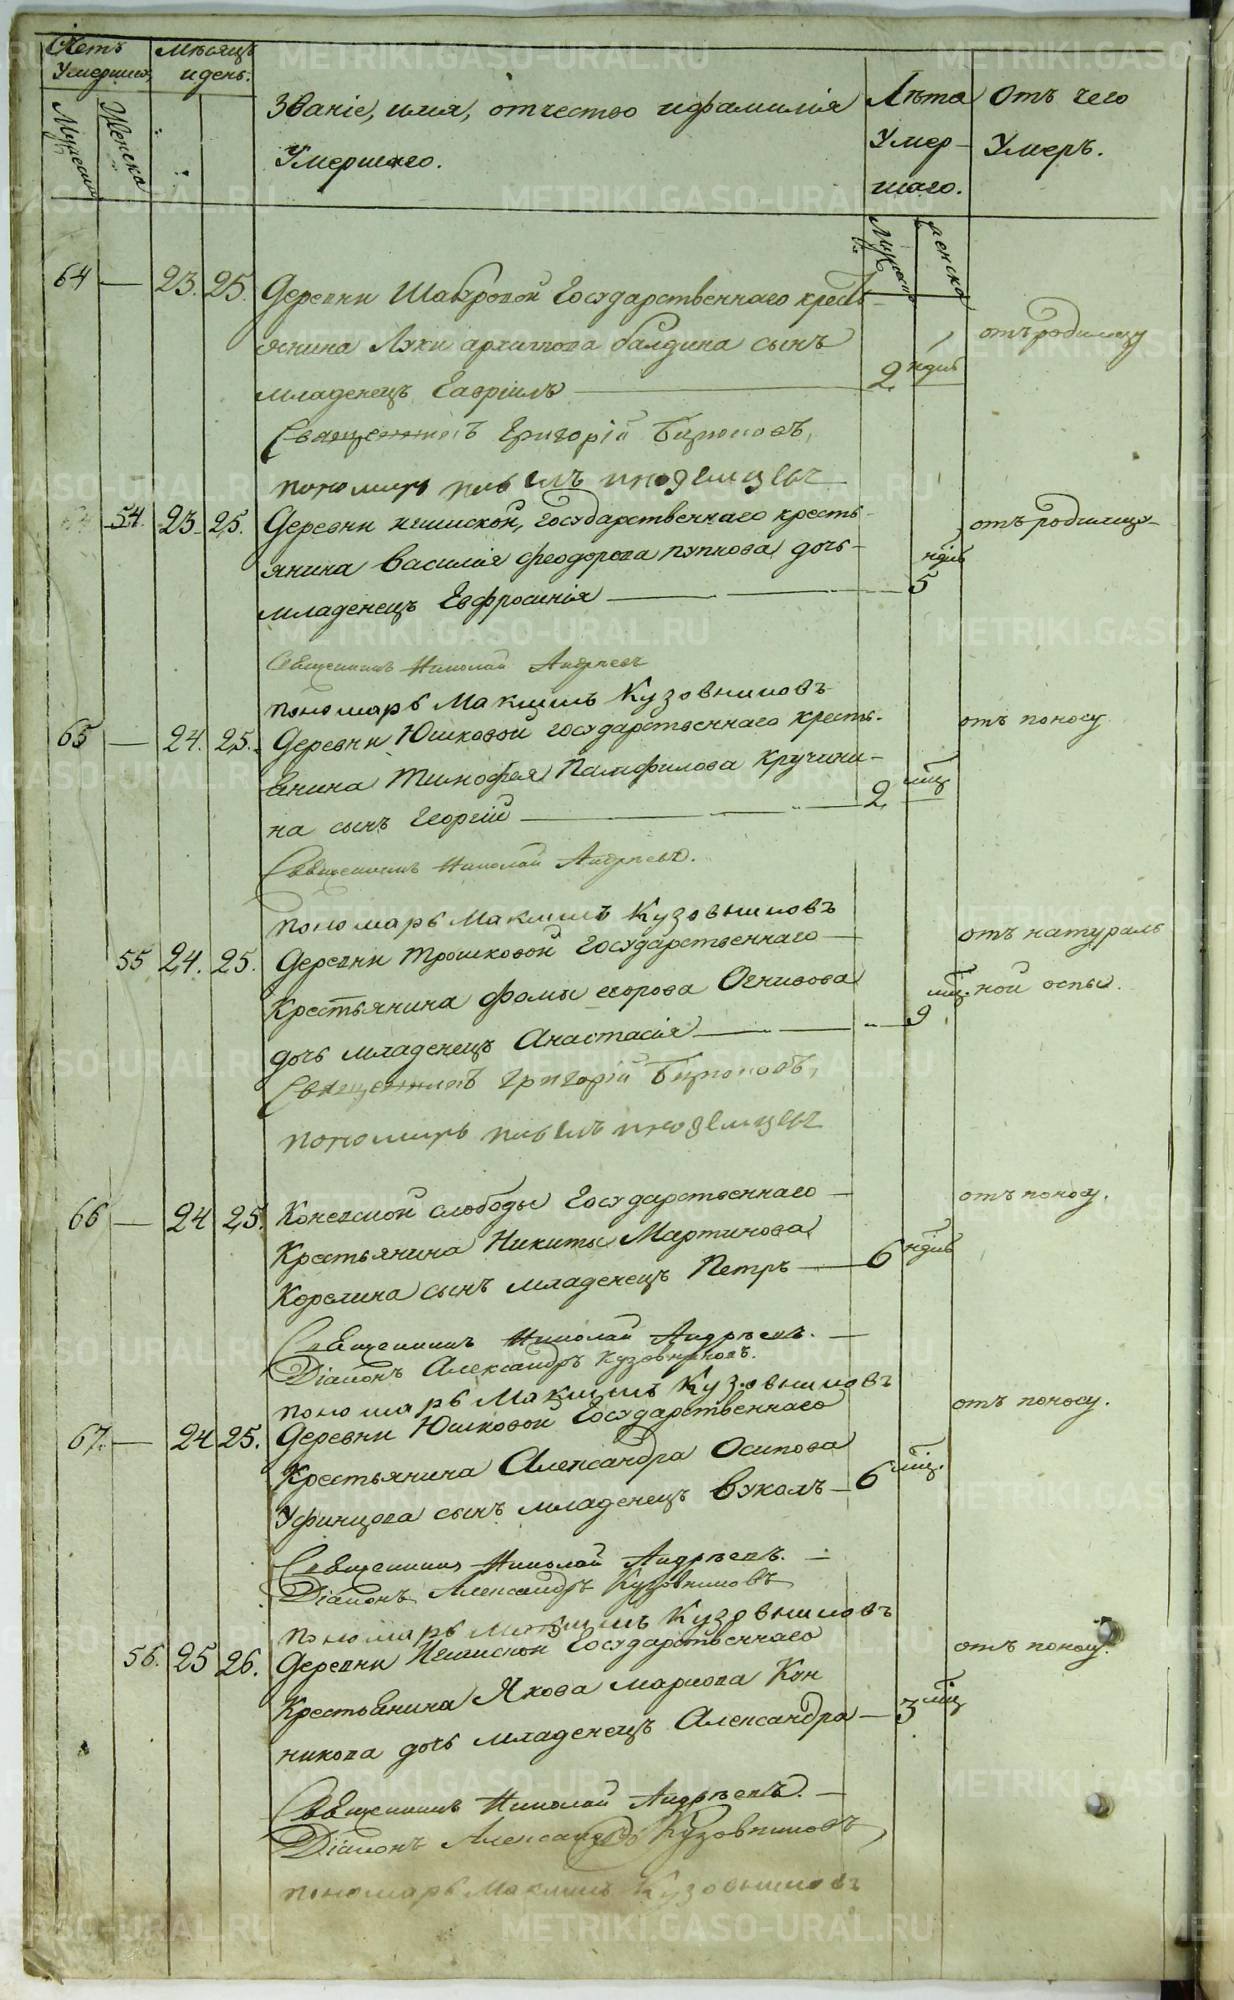 Счетъ Умершихъ
Мѣсяцъ и день.
Мужеска
Женска
Званіе, имя, отчество и фамилія
Умершаго.
Лѣта Умер-
шаго.
Отъ чего
Умеръ.
Мужеска
женска
64 — 23. 25. Деревни Шабровой Государственнаго кресть-
янина Луки архиппова балдина сынъ
младенецъ Гавріилъ — 2 ндѣл отъ родимцу
Священникъ Григорій Бирюковъ,
пономарь
54. 23. 25. Деревни государственнаго кресть-
янина Василія Феодорова пупкова дочь
младенецъ Евфросинія — 5 ндѣл отъ родимцу
Священникъ Николай Андреевъ
пономарь Максимъ Кузовниковъ
65 — 24. 25. Деревни Юшковой государственнаго кресть-
янина Тимофея Памфилова Кручини-
на сынъ Георгій — 2 мѣц отъ поносу
Священникъ Николай Андреевъ.
пономарь Максимъ Кузовниковъ
55 24. 25. Деревни Трошковой Государственнаго
Крестьянина Фомы егорова Огнивова
дочь младенецъ Анастасія — 9 мѣц. отъ натураль
ной оспы.
Священникъ Григорій Бирюковъ,
пономарь
66 — 24 25. Коневской слободы Государственнаго
Крестьянина Никиты Мартинова
Корелина сынъ младенецъ Петръ — 6 ндѣль отъ поносу.
Священникъ Николай Андреевъ.
Діаконъ Александръ Кузовниковъ.
пономарь Максимъ Кузовниковъ
67. — 24 25. Деревни Юшковой Государственнаго
Крестьянина Александра Осипова
Уфинцова сынъ младенецъ Вуколъ — 6 мѣц. отъ поносу.
Священникъ Николай Андреевъ.
Діаконъ Александръ Кузовниковъ
пономарь Максимъ Кузовниковъ
56. 25 26. Деревни Государственнаго
Крестьянина Якова маркова Кон
никова дочь младенецъ Александра — 3 мѣц отъ поносу.
Священникъ Николай Андреевъ.
Діаконъ Александръ Кузовниковъ,
пономарь Максимъ Кузовниковъ
METRIKI.GASO-URAL.RU